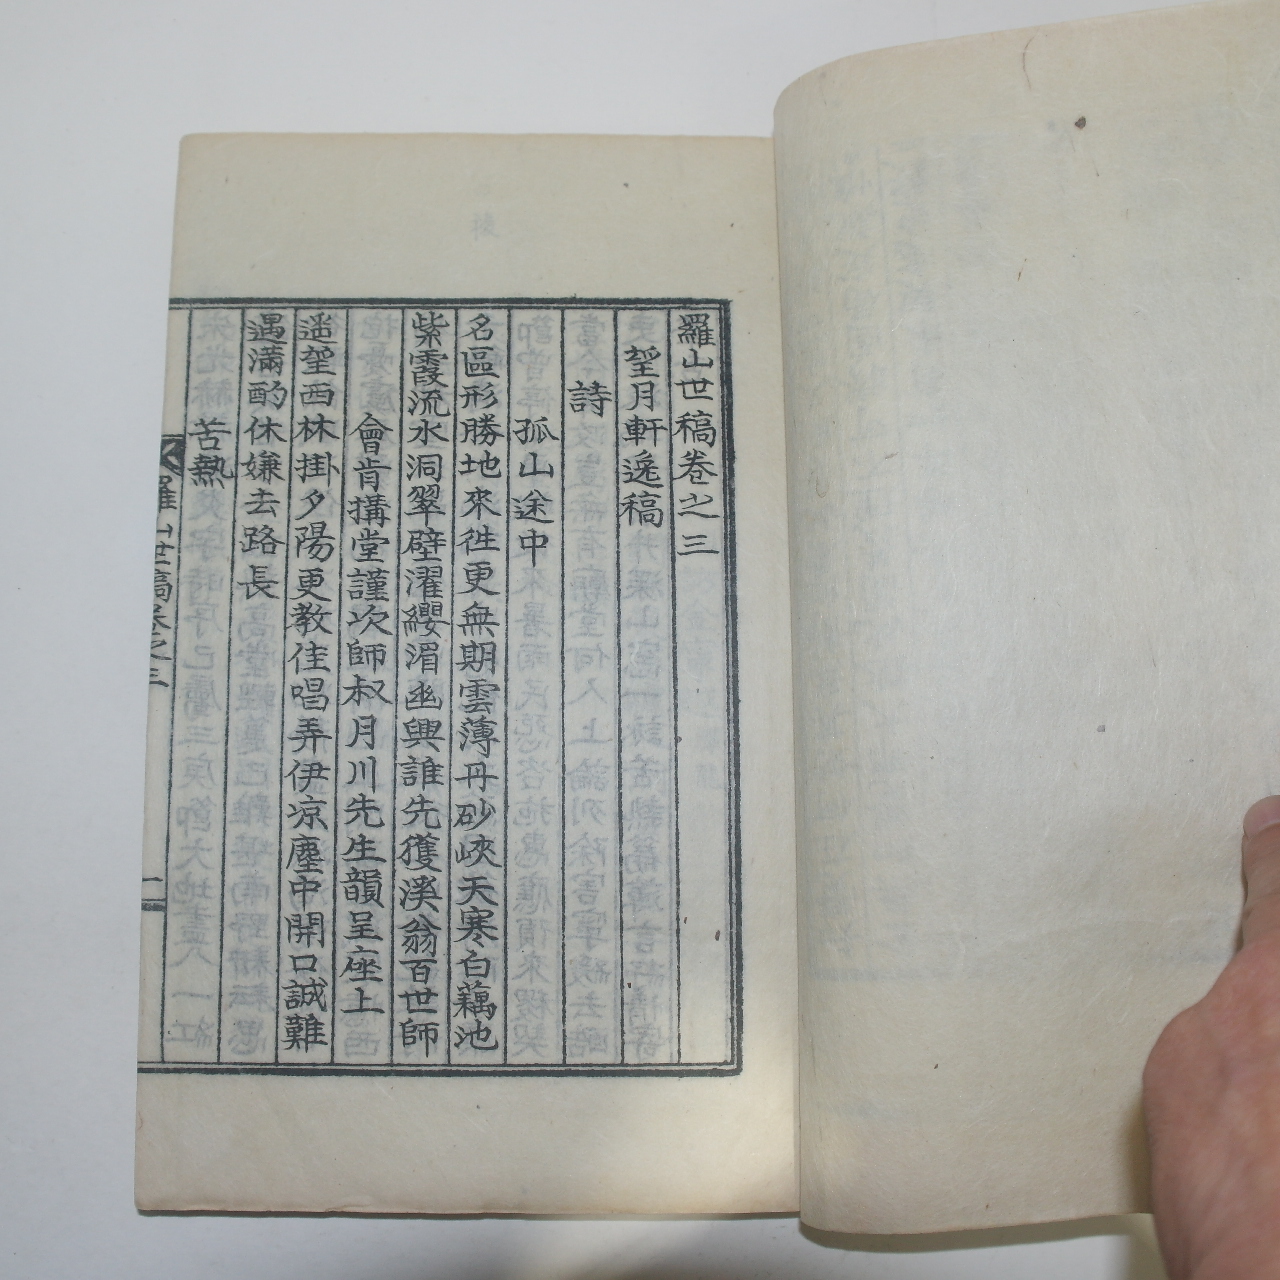 羅山世稿卷之三
望月軒逸稿
詩
孤山途中
名區形勝地來徃更無期雲薄丹砂峽天寒白藕池
紫霞流水洞翠壁濯纓湄幽興誰先獲溪翁百世師
會肯搆堂謹次師叔月川先生韻呈座上
遥望西林掛夕陽更教佳唱弄伊凉塵中開口誠難
遇滿酌休嫌去路長
苦熱
羅山世稿卷之三
一